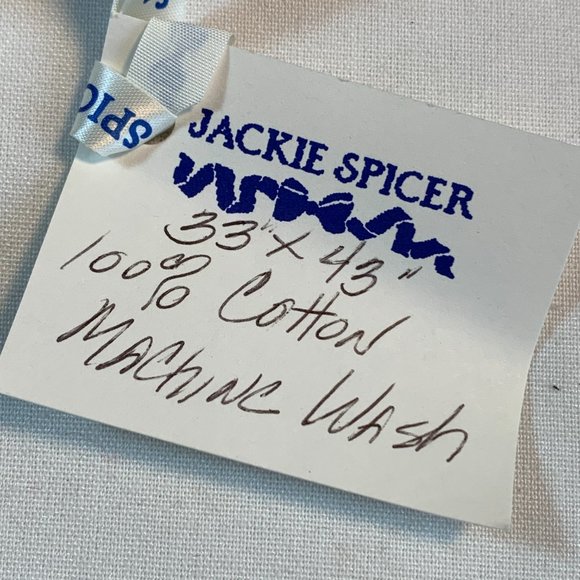 SPIC
JACKIE SPICER
33" x 43"
100% Cotton
Machine Wash